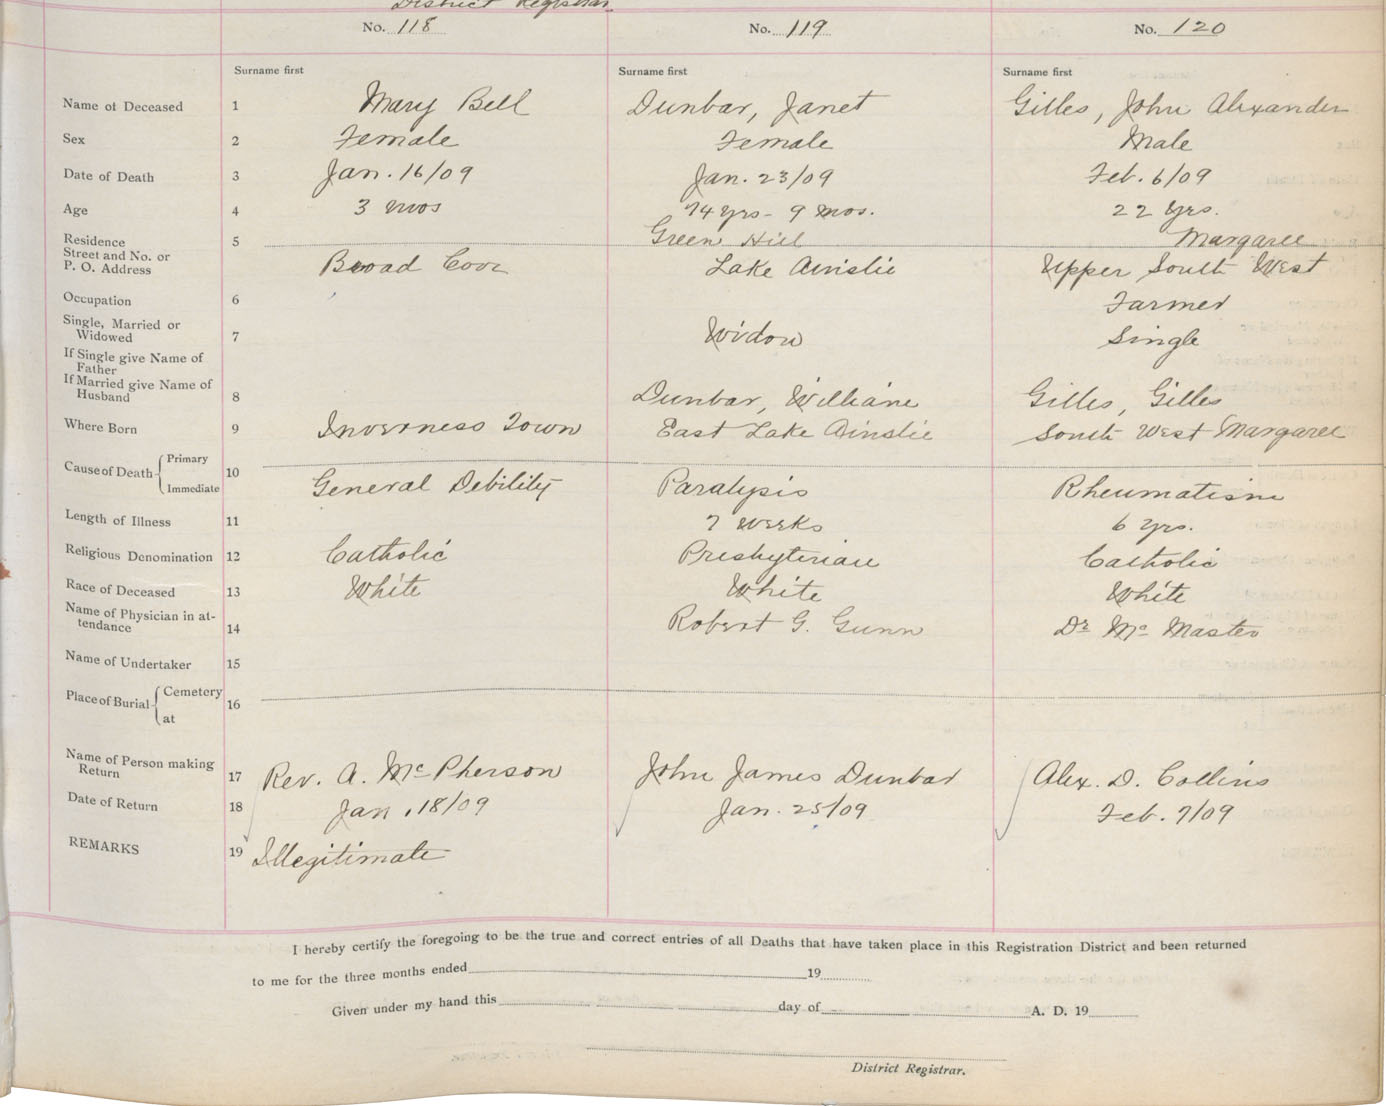 District Registrar.
No. 118 No. 119 No. 120
Surname first Surname first Surname first
Name of Deceased 1 Mary Bell Dunbar, Janet Gilles, John Alexander
Sex 2 Female Female Male
Date of Death 3 Jan. 16/09 Jan. 23/09 Feb. 6/09
Age 4 3 mos 74 yrs - 9 mos. 22 yrs.
Residence 5 Green Hill Margaree
Street and No. or
P. O. Address Broad Cove Lake Ainslie Upper South West
Occupation 6 Farmer
Single, Married or
Widowed 7 Widow Single
If Single give Name of
Father
If Married give Name of
Husband 8 Dunbar, William Gilles, Gilles
Where Born 9 Inverness Town East Lake Ainslie South West Margaree
Cause of Death { Primary
10 General Debility Paralysis Rheumatism
Immediate
Length of Illness 11 7 weeks 6 yrs.
Religious Denomination 12 Catholic Presbyterian Catholic
Race of Deceased 13 White White White
Name of Physician in at-
tendance 14 Robert G. Gunn Dr Mc Master
Name of Undertaker 15
Place of Burial { Cemetery
16
at
Name of Person making
Return 17 Rev. A. McPherson John James Dunbar Alex. D. Collins
Date of Return 18 Jan. 18/09 Jan. 25/09 Feb. 7/09
REMARKS 19 Illegitimate
I hereby certify the foregoing to be the true and correct entries of all Deaths that have taken place in this Registration District and been returned
to me for the three months ended 19
Given under my hand this day of A. D. 19
District Registrar.